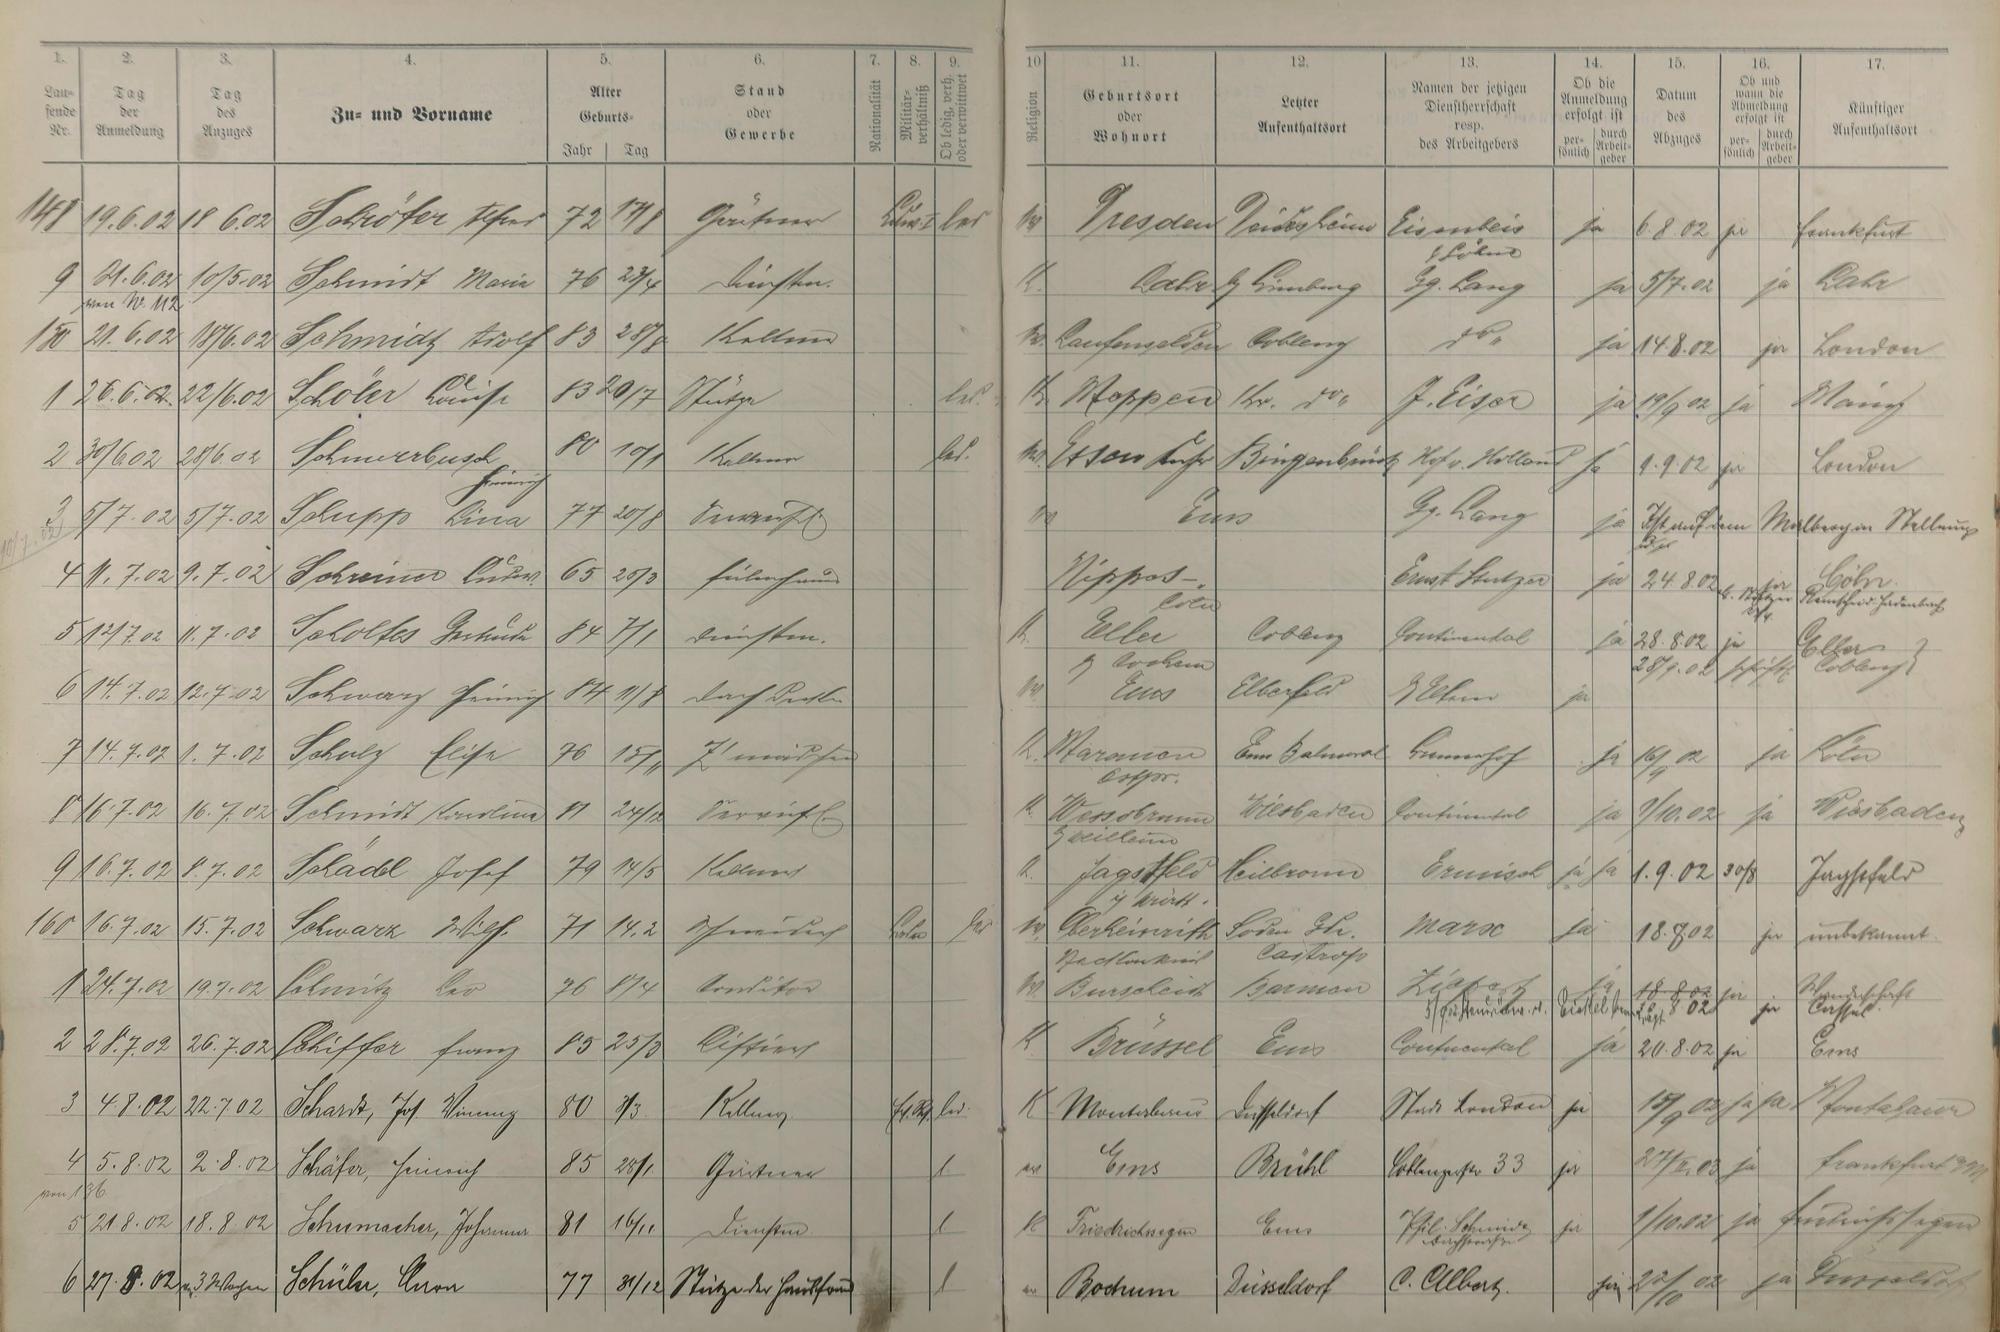 1. 2. 3. 4. 5. 6. 7. 8. 9. 10 11. 12. 13. 14. 15. 16. 17.
Laufende Nr. Tag der Anmeldung Tag des Anzuges Zu- und Vorname Alter Geburts- Jahr Tag Stand oder Gewerbe Nationalität Militärverhältniß Ob ledig, verh. oder verwittwet Religion Geburtsort oder Wohnort Letzter Aufenthaltsort Namen der jetzigen Dienstherrschaft resp. des Arbeitgebers Ob die Anmeldung erfolgt ist persönlich durch Arbeitgeber Datum des Abzuges Ob und wann die Abmeldung erfolgt ist persönlich durch Arbeitgeber Künftiger Aufenthaltsort
148 19.6.02 18 6.02 Schröter Alfred 72 17/8 Gärtner led Dresden Deidesheim Eisenbeis & Söhne ja 6.8.02 ja Frankfurt
9 21.6.02 10/5.02 Schmidt Maria 76 23/4 Dienstm. K. Lahr b/ Limburg Gg. Lang ja 5/7.02 ja Lahr
von N. 112
150 21.6.02 18/6.02 Schmidt Adolf 83 28/8 Kellner Laufenselden Coblenz do ja 14.8.02 ja London
1 26.6.02 22/6.02 Schöler Louise 83 20/7 Stütze led. K. Meppen Kr. do J. Eiser ja 19/9 02 ja Mainz
2 30/6 02 28/6.02 Schmerbusch Heinrich 80 10/1 Kellner led. Essen Ruhr Bingenbrück Hof v. Holland ja 9.9.02 ja London
3 5/7.02 5/7.02 Schupp Lina 77 20/8 Ems Gg. Lang ja Ist auf dem Malberg in Stellung
10/7.02
4 11.7.02 9.7.02 Schreiner Ludw. 65 25/3 Nippes- Cöln Ernst Stutzer ja 24.8.02 ja Cöln
5 12/7 02 11.7.02 Scholtes Gertrude 84 7/1 Dienstm. K. Eller b/ Cochem Coblenz Continental ja 28.8.02 ja Eller
28/9.02 Coblenz
6 14.7.02 12.7.02 Schwarz Heinrich 84 11/8 Dachdecker Ems Elberfeld ja
7 14.7.02 1.7.02 Schulz Elise 76 15/11 Z'mädchen K. Ostpr. Ems Balmoral ja 16/9 02 ja Köln
8 16.7.02 16.7.02 Schmidt Karolina 81 24/12 K. Wessobrunn b/ Weilheim Wiesbaden Continental ja 1/10.02 ja Wiesbaden
9 16.7.02 8.7.02 Schädel Josef 79 14/5 Kellner K. Jagstfeld i/ Württ. Heilbronn Ermisch ja ja 1.9.02 30/8 Jagstfeld
160 16.7.02 15.7.02 Schwarz Wilh. 71 14.2 led Oberheinrieth Soden Marx ja 18.7 02 ja unbekannt.
1 24.7.02 19.7.02 Schmitz Leo 76 8/4 Conditor Burscheid Barmen ja 18 8 02 ja Wanderschaft
8 02 ja Cassel.
2 28.7.02 26.7.02 Schiffer Franz 85 25/3 Liftier K Brüssel Ems Continental ja 20.8.02 ja Ems
3 4.8.02 22.7 02 Schardt, Jos 80 3/3 Kellner led. K Montabaur Düsseldorf Stadt London ja 15/9 02 ja ja Montabaur
4 5.8.02 2.8.02 Schäfer, Heinrich 85 28/1 Gärtner l Ems Brühl Coblenzerstr 33 ja 27/II.03 ja Frankfurt a/M
von 136
5 21 8.02 18.8 02 Schumacher, Johanna 81 16/11 Dienstm l K Friedrichssegen Ems Phil. Schmidt ja 1/10.02 ja Friedrichssegen
6 27.8.02 3 Wochen Schüler, Anna 77 31/12 Stütze der Hausfrau l Bochum Düsseldorf C. Albertz. ja 22/10 02 ja Düsseldorf